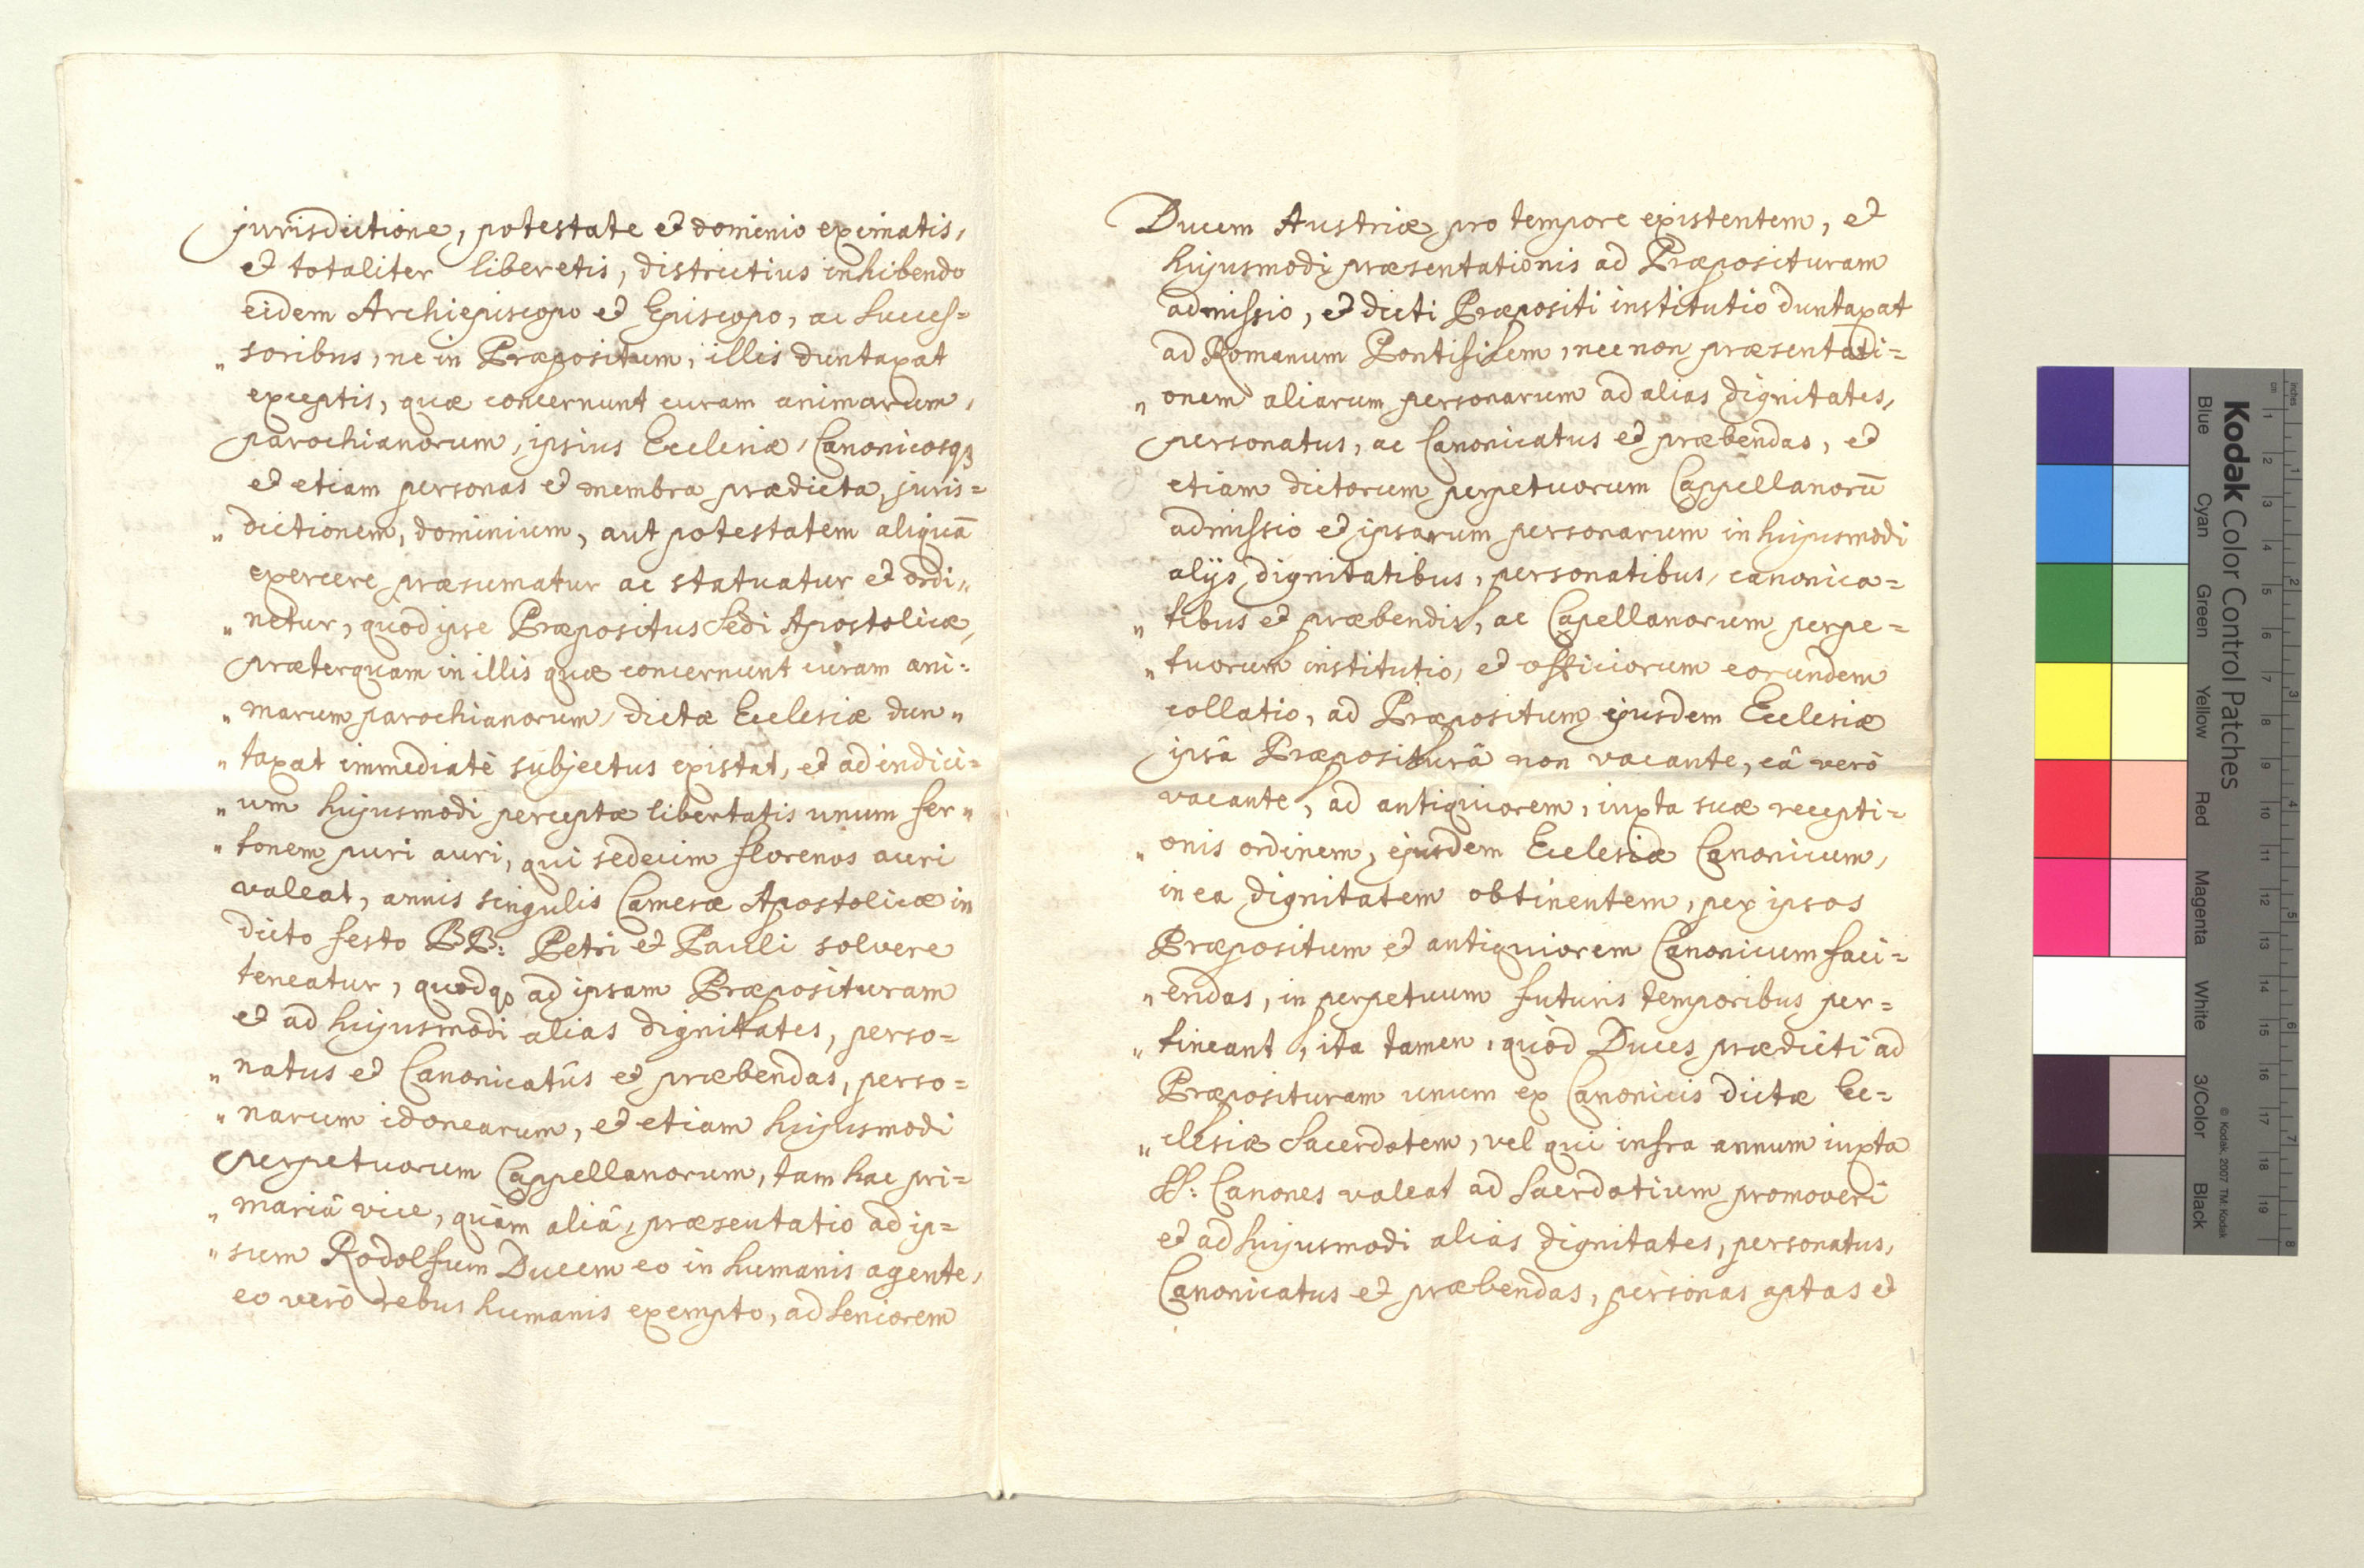 jurisdictione, potestate et dominio eximatis,
et totaliter liberetis, districtius inhibendo
eidem Archiepiscopo et Episcopo, ac succes=
„ soribus, ne in Præpositum, illis duntaxat
exceptis, quæ concernunt curam animarum,
parochianorum, ipsius Ecclesiæ, Canonicosqꝫ
et etiam personas et membra prædicta, juris=
„ dictionem, dominium, aut potestatem aliquā
exercere præsumatur ac statuatur et ordi„
„ netur, quod ipse Præpositus Sedi Apostolicæ,
præterquam in illis quæ concernunt curam ani=
„ marum parochianorum, dictæ Ecclesiæ dun„
„ taxat immediatè subjectus existat, et ad indici=
„ um hujusmodi perceptæ libertatis unum fer„
„ tonem puri auri, qui sedecim florenos auri
valeat, annis singulis Cameræ Apostolicæ in
dicto festo BB: Petri et Pauli solvere
teneatur, quodqꝫ ad ipsam Præposituram
et ad hujusmodi alias dignitates, perso=
„ natus et Canonicatûs et præbendas, perso=
„ narum idonearum, et etiam hujusmodi
perpetuorum Cappellanorum, tam hac pri=
„ mariâ vice, quàm aliâ, præsentatio ad ip=
„ sum Rodolfum Ducem eo in humanis agente,
eo verò rebus humanis exempto, ad seniorem
Ducem Austriæ pro tempore existentem, et
hujusmodi præsentationis ad Præposituram
admissio, et dicti Præpositi institutio duntaxat
ad Romanum Pontificem, nec non præsentati=
„ onem aliarum personarum ad alias dignitates,
personatus, ac Canonicatus et præbendas, et
etiam dictorum perpetuorum Cappellanorū
admissio et ipsarum personarum in hujusmodi
alijs dignitatibus, personatibus, canonica=
„ tibus et præbendis, ac Capellanorum perpe=
„ tuorum institutio, et officiorum eorundem
collatio, ad Præpositum ejusdem Ecclesiæ
ipsâ Præpositurâ non vacante, eâ verò
vacante, ad antiquiorem, iuxta suæ recepti=
„ onis ordinem, ejusdem Ecclesiæ Canonicum,
in ea dignitatem obtinentem, per ipsos
Præpositum et antiquiorem Canonicum faci=
„ endas, in perpetuum futuris temporibus per=
„ tineant, ita tamen, quòd Duces prædicti ad
Præposituram unum ex Canonicis dictæ Ec=
„ clesiæ Sacerdotem, vel qui infra annum iuxta
SS: Canones valeat ad Sacerdotium promoveri
et ad hujusmodi alias dignitates, personatus,
Canonicatus et præbendas, personas aptas et
Kodak Color Control Patches
Blue
Cyan
Green
Yellow
Red
Magenta
White
3/Color
Black
© Kodak, 2007 TM: Kodak
inches
cm
1
2
3
4
5
6
7
8
9
10
11
12
13
14
15
16
17
18
19
1
2
3
4
5
6
7
8